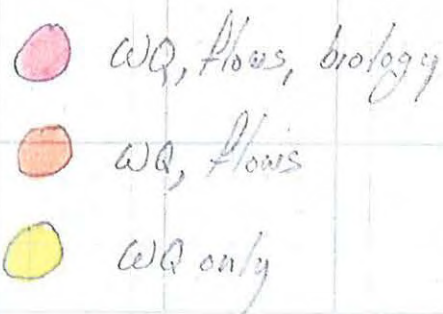 WQ, flows, biology
WQ, flows
WQ only